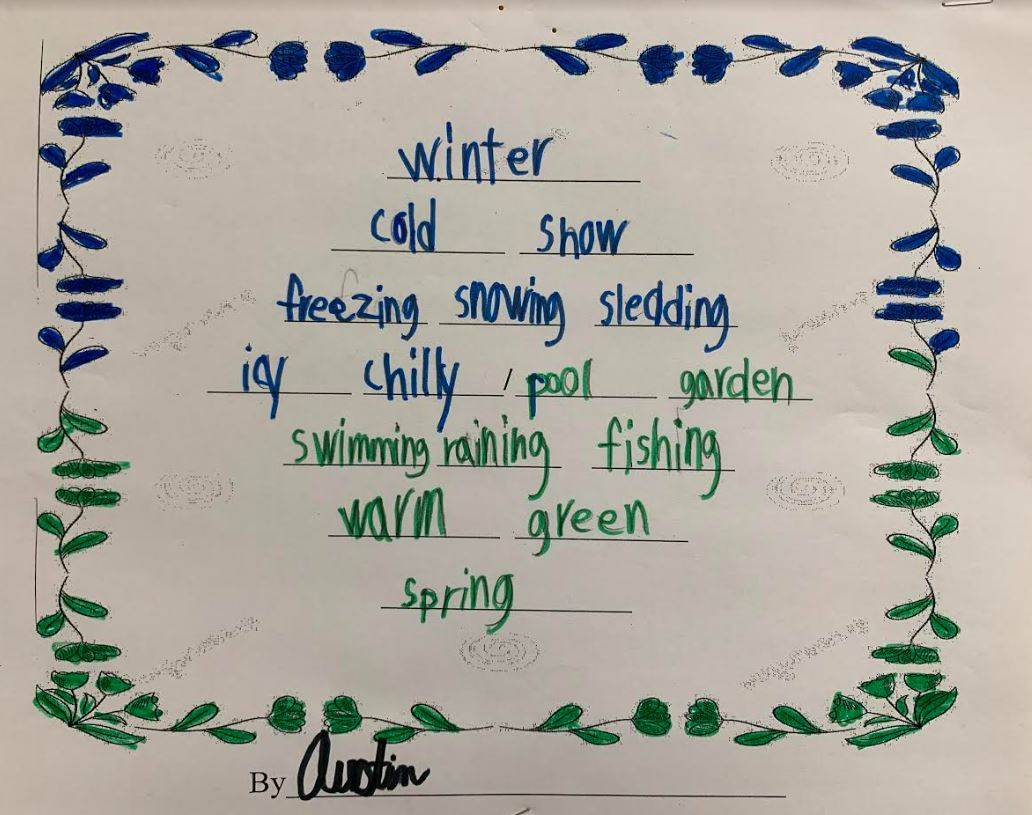 winter
cold snow
freezing snowing sledding
icy chilly / pool garden
swimming raining fishing
warm green
spring
By Austin